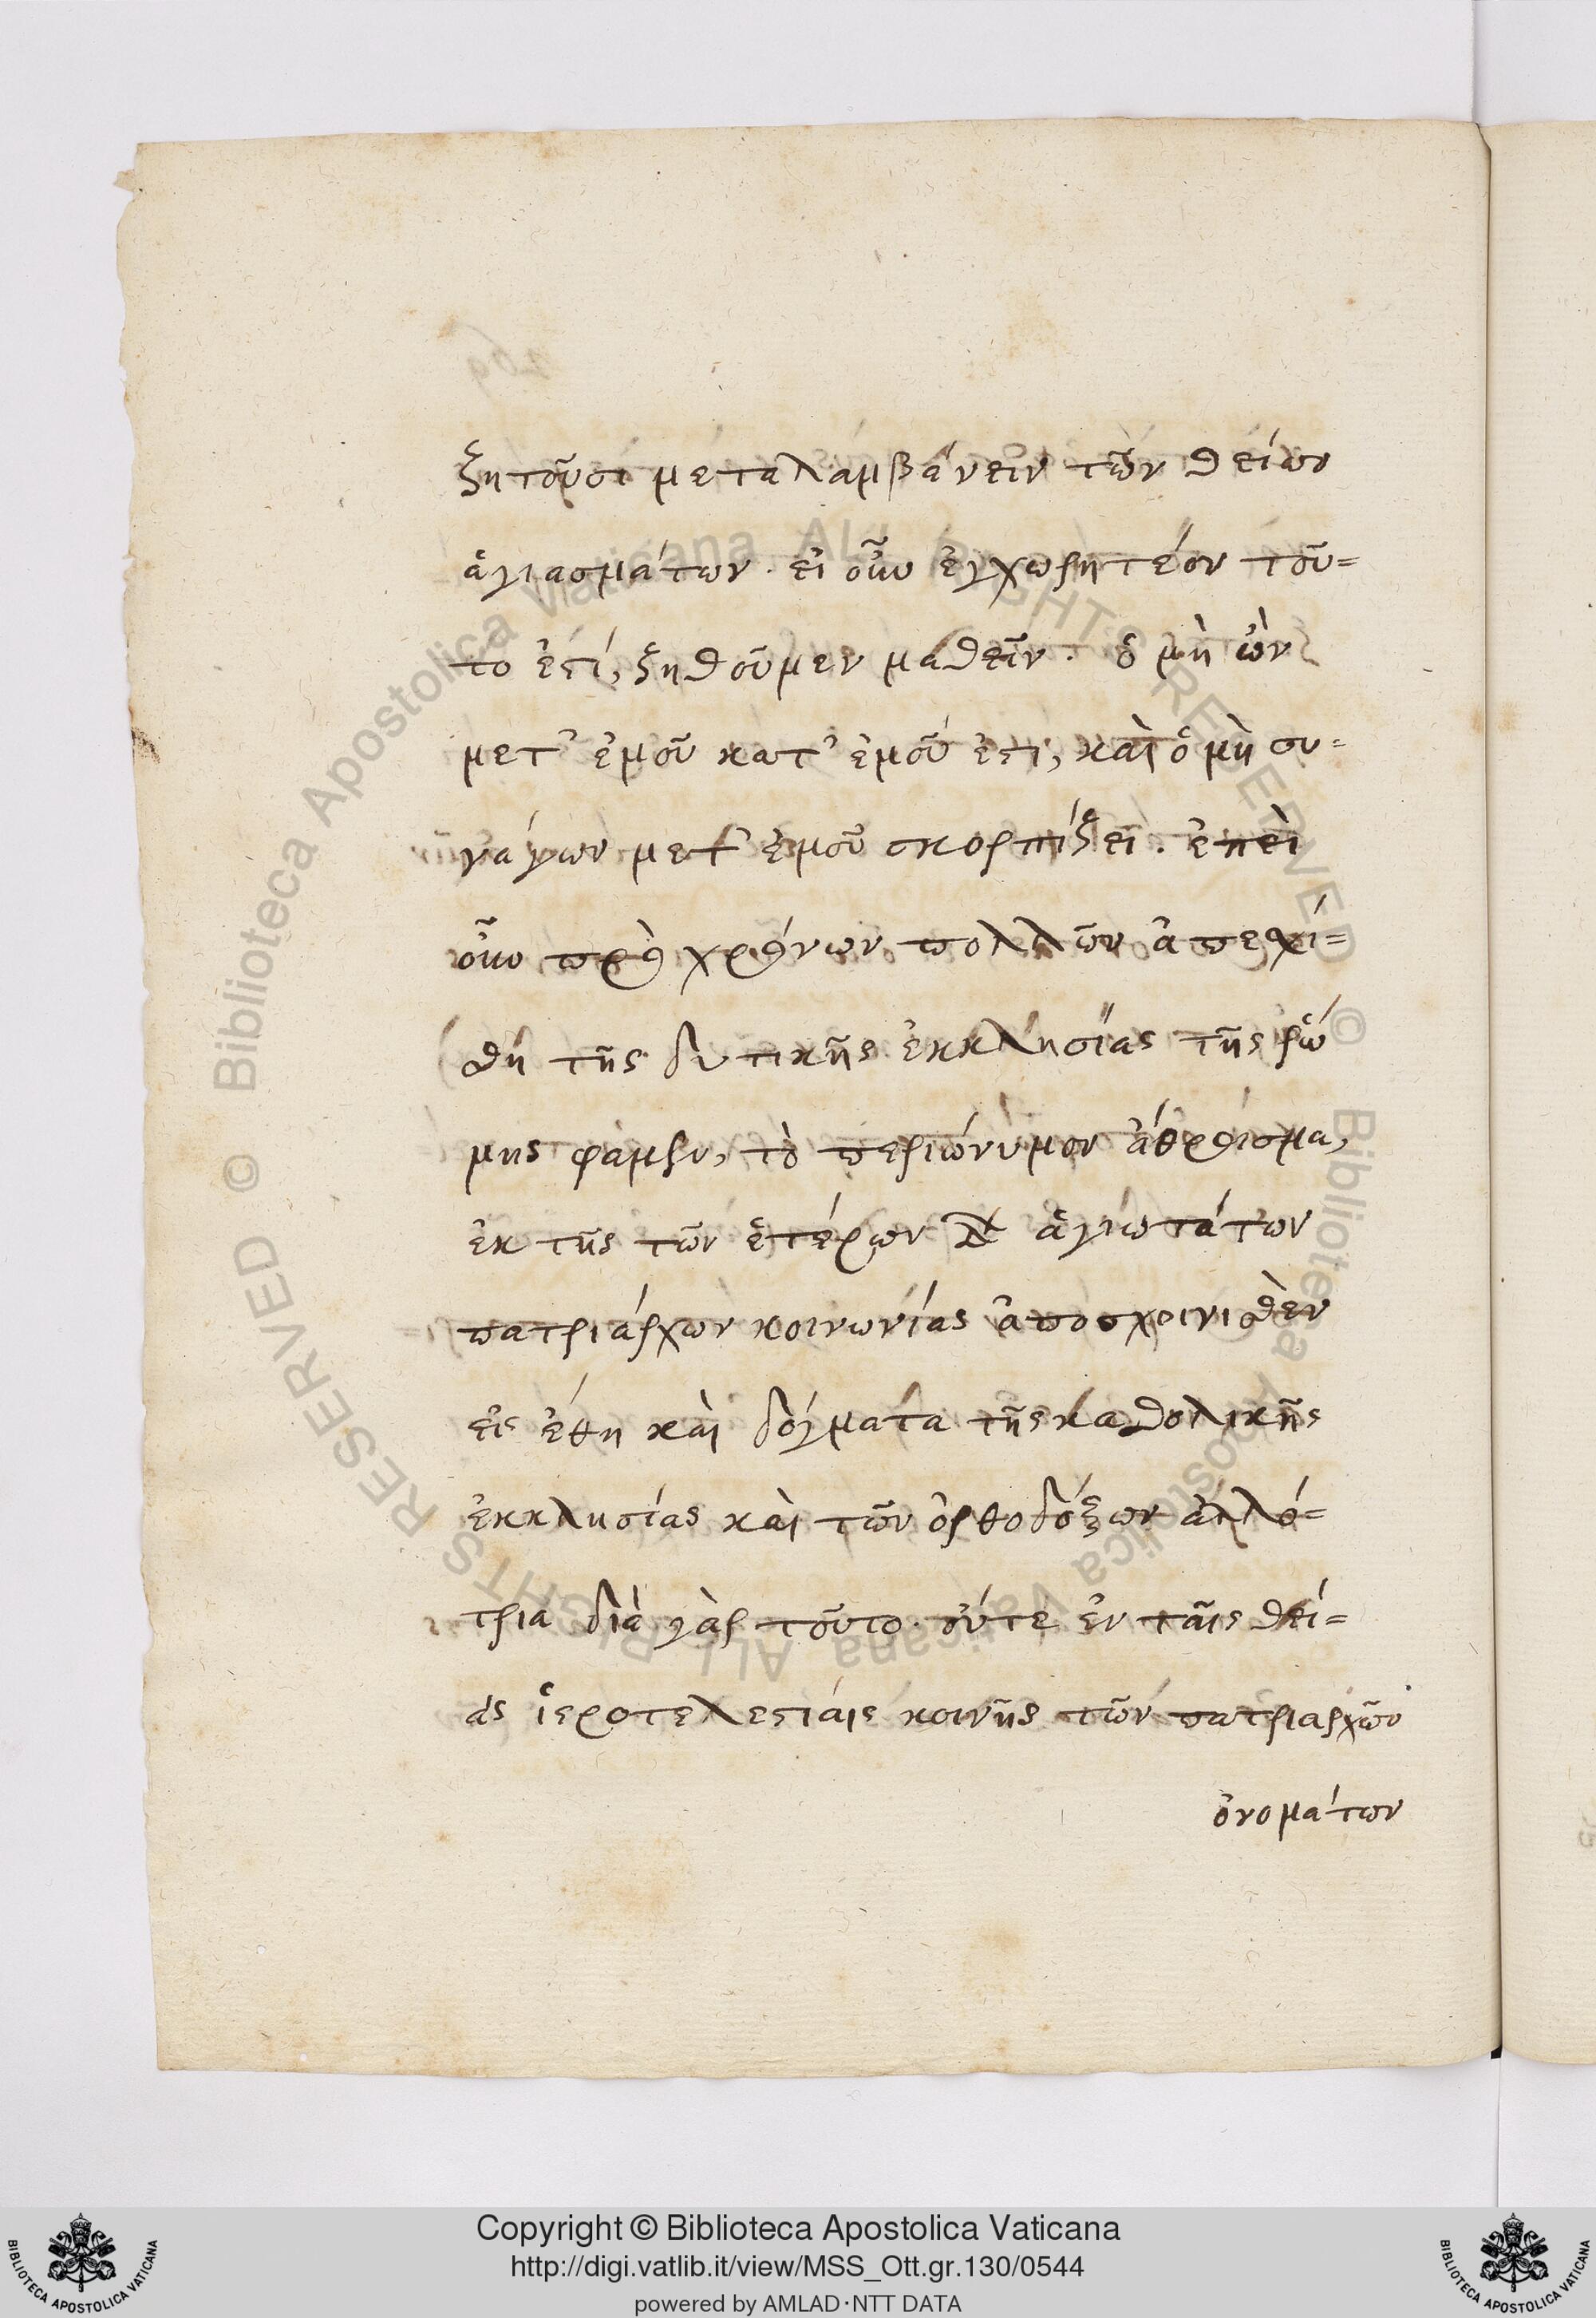 ζητοῦσι μεταλαμβάνειν τῶν θείων
ἁγιασμάτων. εἰ οὖν ἐγχωρητέον τοῦ=
το ἐστί, ζηθοῦμεν μαθεῖν. ὁ μὴ ὢν
μετ' ἐμοῦ κατ' ἐμοῦ ἐστι, καὶ ὁ μὴ συ=
νάγων μετ' ἐμοῦ σκορπίζει. ἐπεὶ
οὖν πρὸ χρόνων πολλῶν ἀπεσχί=
θη τῆς δυτικῆς ἐκκλησίας τῆς ῥώ
μης φαμὲν, τὸ περιώνυμον ἄθροισμα,
ἐκ τῆς τῶν ἑτέρων δ ἁγιωτάτων
πατριάρχων κοινωνίας ἀποσχοινιθὲν
εἰς ἔθη καὶ δόγματα τῆς καθολικῆς
ἐκκλησίας καὶ τῶν ὀρθοδόξων ἀλλό=
τρια διὰ γὰρ τοῦτο. οὔτε ἐν ταῖς θεί=
ας ἱεροτελεστίαις κοινῆς τῶν πατριαρχῶν
ὀνομάτων
Copyright © Biblioteca Apostolica Vaticana
http://digi.vatlib.it/view/MSS_Ott.gr.130/0544
powered by AMLAD·NTT DATA
© Biblioteca Apostolica Vaticana ALL RIGHTS RESERVED
© Biblioteca Apostolica Vaticana ALL RIGHTS RESERVED
BIBLIOTECA APOSTOLICA VATICANA
BIBLIOTECA APOSTOLICA VATICANA